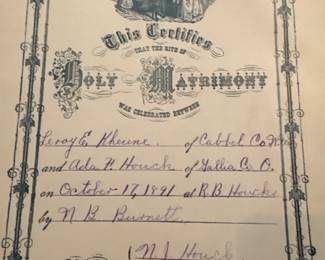 This Certifies
THAT THE RITE OF
HOLY MATRIMONY
WAS CELEBRATED BETWEEN
Leroy E. Kheune of Cabbel Co
and Ada P. Houck of Gallia Co. O.
on October 17, 1891 at R.B. Houcks
by N. B. Burnett
N. J. Houck